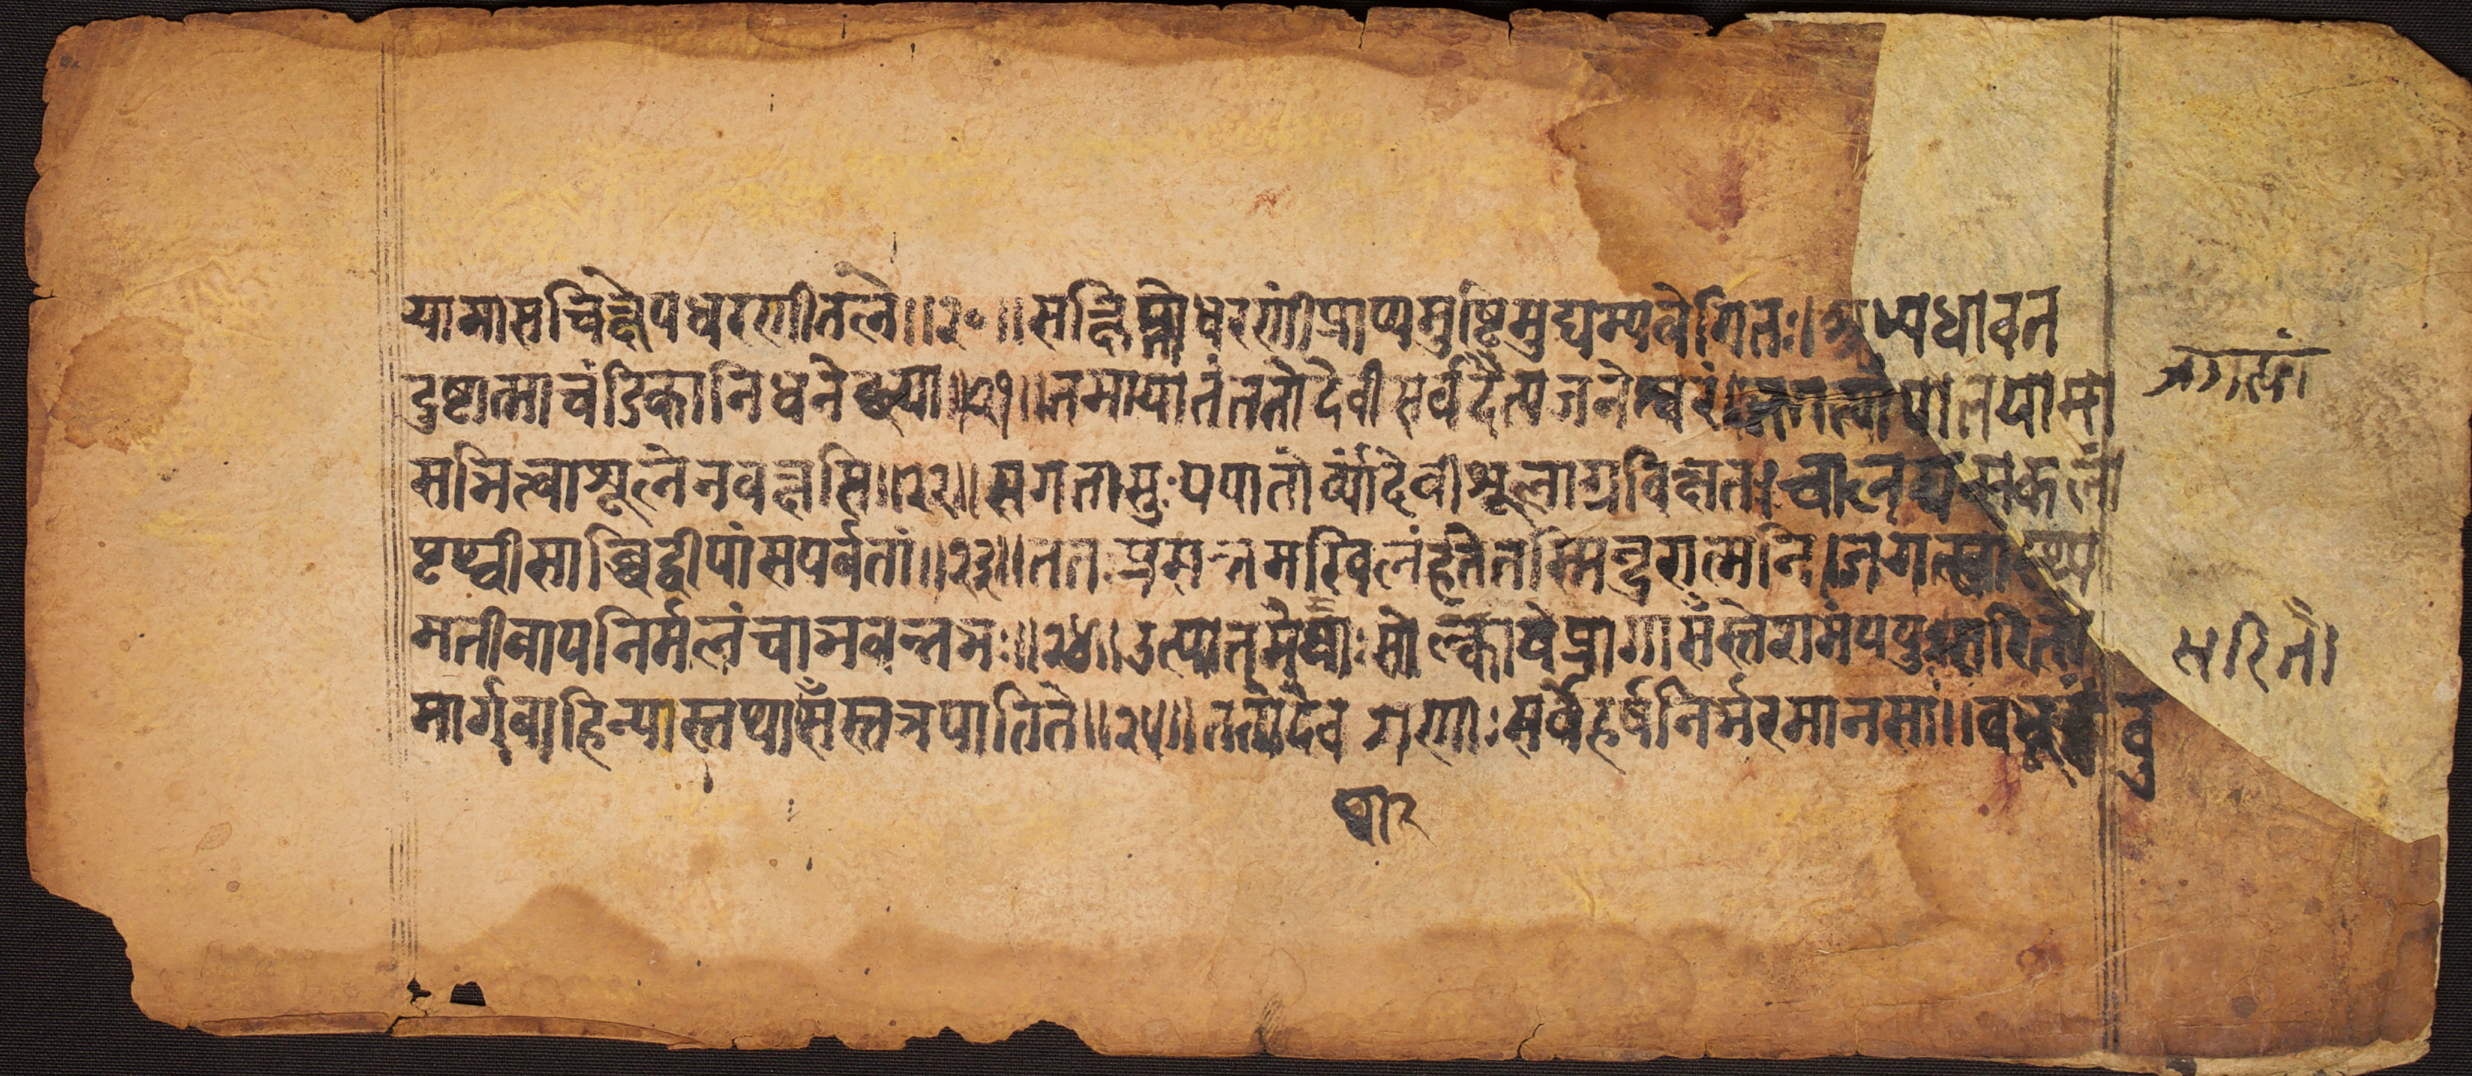 यामासचिक्षेपधरणीतले॥२०॥सक्षिप्तोधरणींप्राप्यमुष्टिमुद्यम्यवेगितः।अभ्यधावत
दुष्टात्माचंडिकानिधनेच्छया॥२१॥तमायांतंततोदेवीसर्वदैत्यजनेश्वरं।जगत्यांपातयामा
जगत्यां
सभित्वाशूलेनवक्षसि॥२२॥सगतासुःपपातोर्व्यांदेवीशूलाग्रविक्षतः।चालयन्सकलां
पृथ्वींसाब्धिद्वीपांसपर्वतां॥२३॥ततःप्रसन्नमखिलंहतेतस्मिन्दुरात्मनि।जगत्स्वास्थ्य
मतीवापनिर्मलंचाभवन्नभः॥२४॥उत्पातमेघाःसोल्कायेप्रागासँस्तेशमंययुः।सरितो
सरितो
मार्गवाहिन्यास्तथासँस्तत्रपातिते॥२५॥ततोदेवगणाःसर्वेहर्षनिर्भरमानसां॥बभूवु